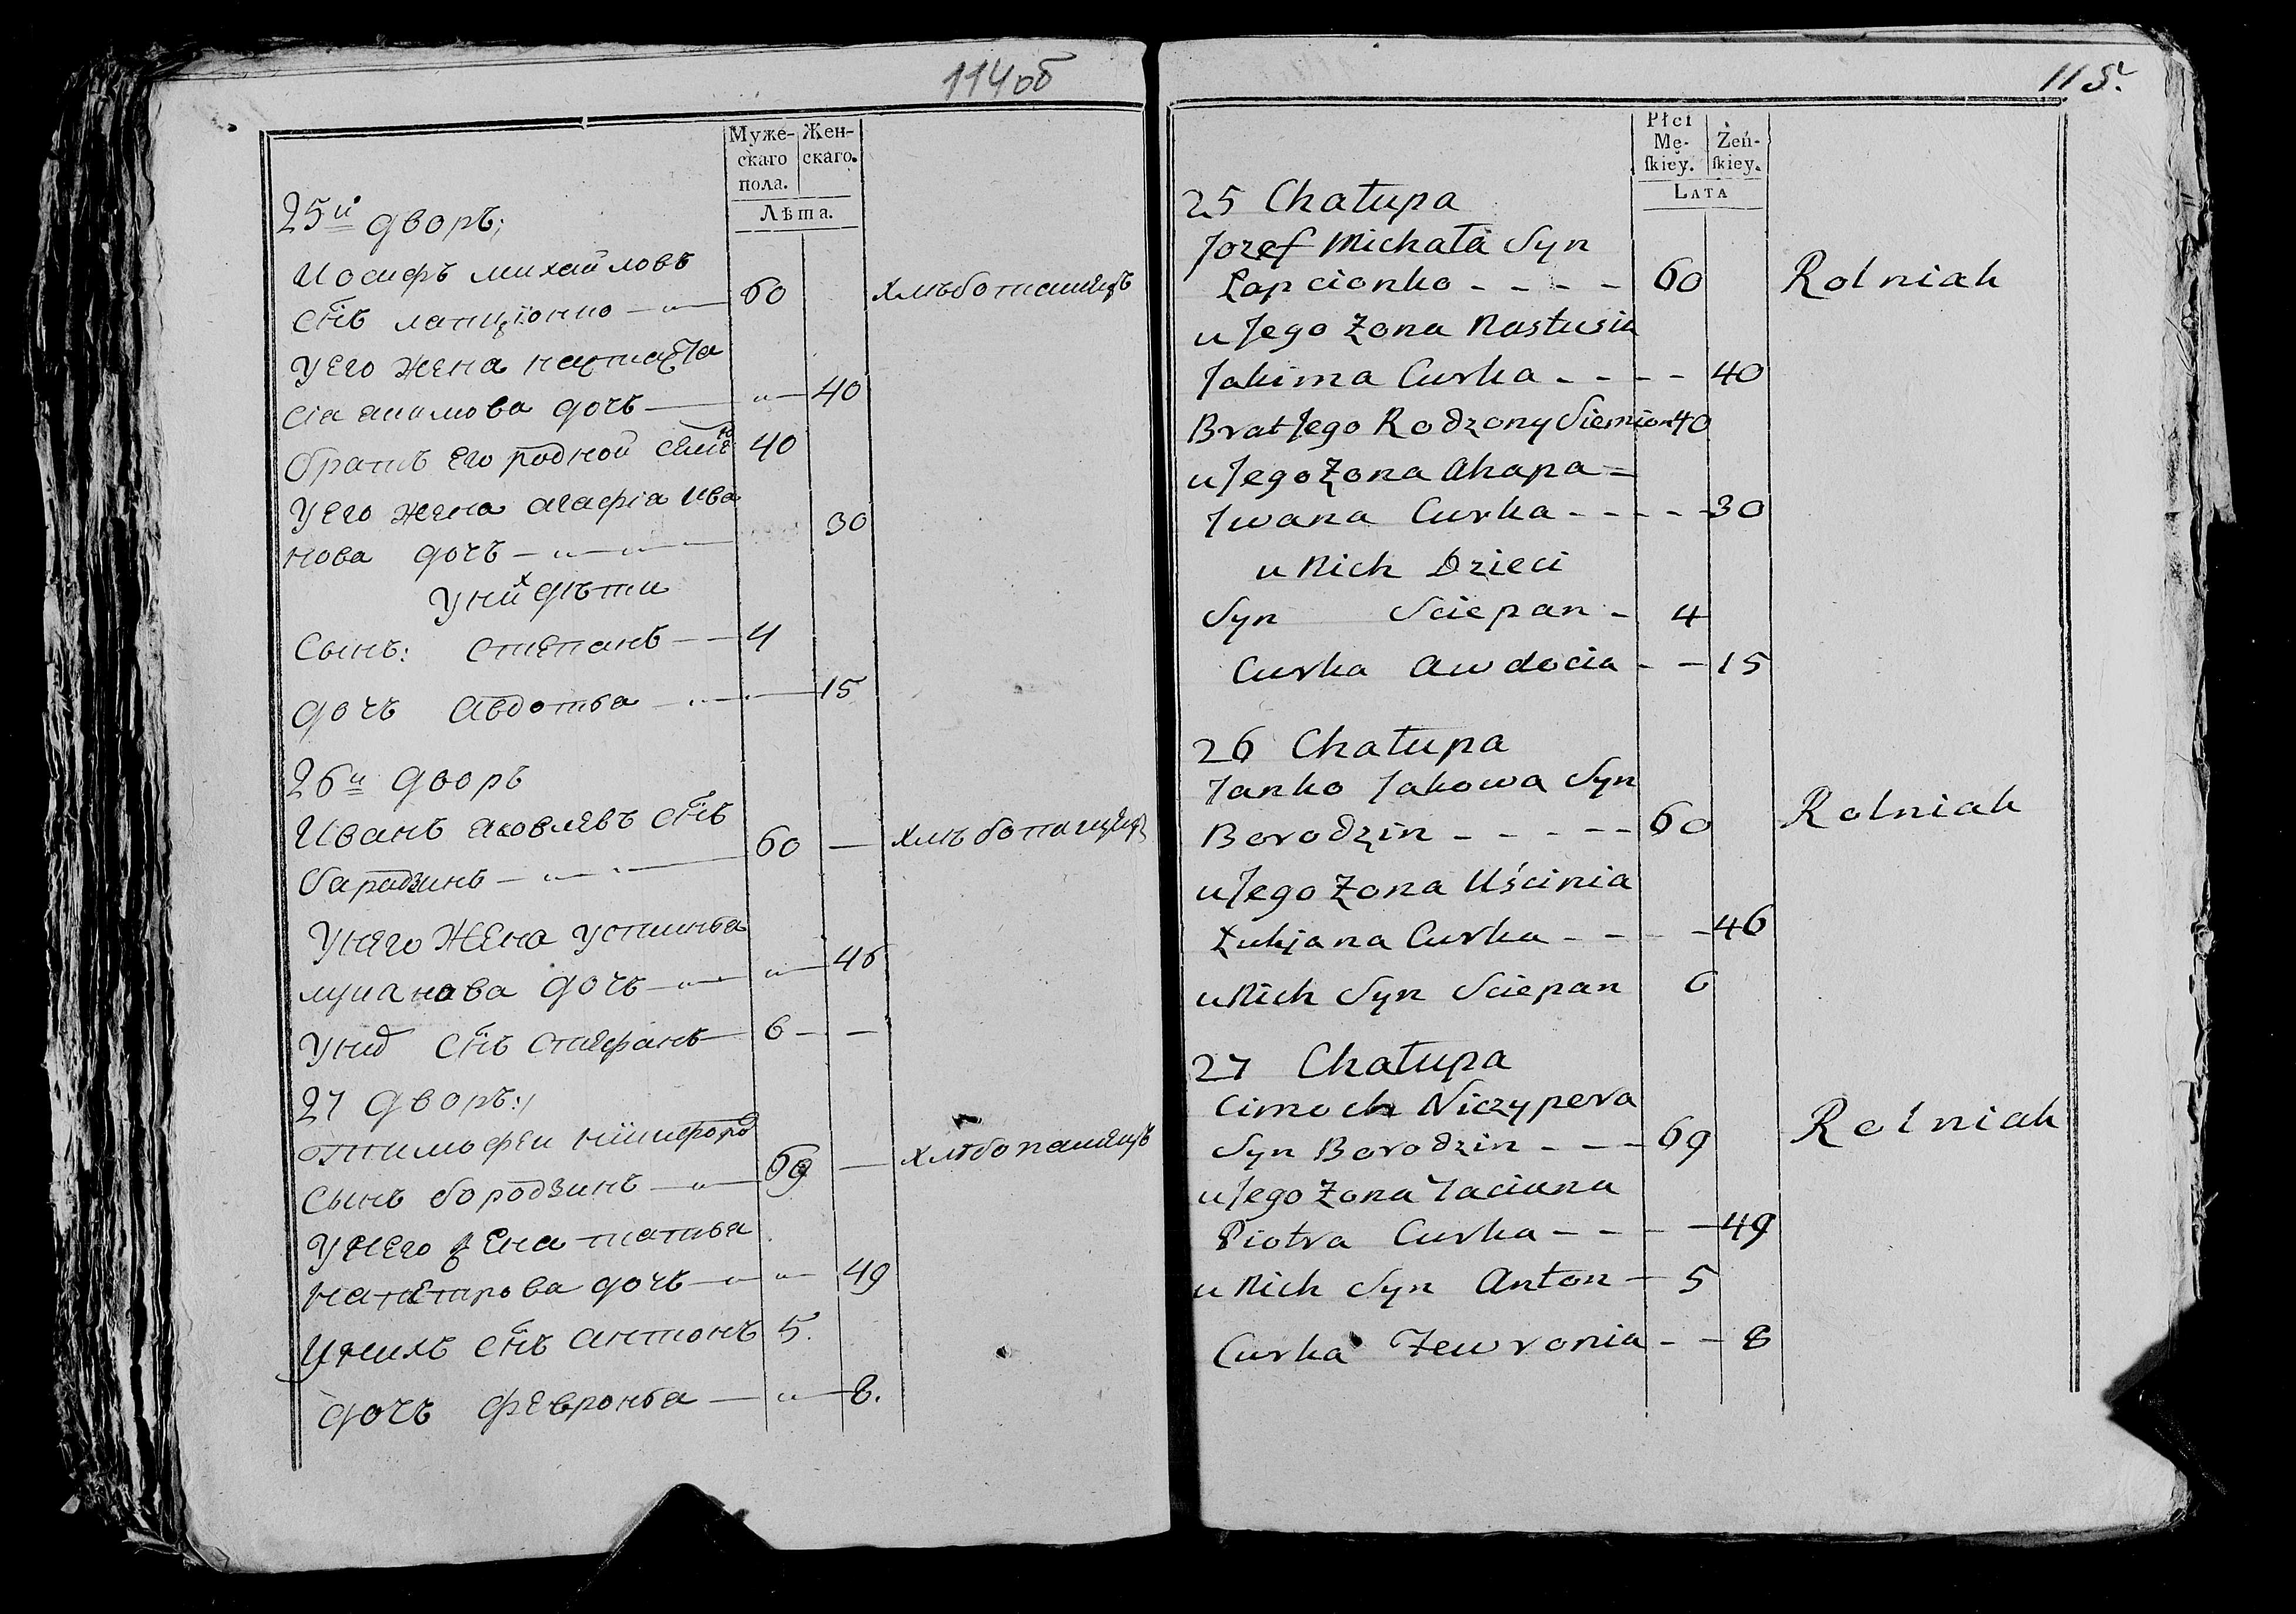 114об
Муже- Жен-
скаго скаго.
пола.
Лѣта.
25й дворъ;
Иосифъ михайловъ
снъ лапціонко 60 хлѣбопашецъ
У его жена настаста
сіа акимова дочь 40
братъ его родной семе 40
У его жена агафіа ива
нова дочь 30
У них дѣти
Сынъ: степанъ 4
дочь авдотьа 15
26й дворъ
Иванъ яковлевъ снъ
барадзинъ 60 — хлѣбопашецъ
У него жена устиньа
лукіанова дочь 46
У них снъ стефанъ 6 — —
27 дворъ:
тимофеи никифоро
сынъ бородзинъ 69 — хлѣбопашецъ
У него жена татьа
на петрова дочь 49
У нихъ снъ антонъ 5.
дочь февроньа 8.
115.
Płci
Mę- Żeń-
ſkiey. ſkiey.
LATA
25 Chałupa
Jozef Michała Syn
Łapcionko - - - - 60 Rolniak
u Jego Żona Nastusia
Jakima Curka - - - - 40
Brat Jego Rodzony Siemion 40
u Jego Żona Ahapa =
Iwana Curka - - - - 30
u Nich Dzieci
Syn Sciepan - 4
Curka Awdocia - - 15
26 Chałupa
Janko Jakowa Syn
Borodzin - - - - - 60 Rolniak
u Jego Żona Uścinia
Łukjana Curka - - - - 46
u Nich Syn Sciepan 6
27 Chałupa
Cimoch Niczypera
Syn Borodzin - - - 69 Rolniak
u Jego Żona Taciana
Piotra Curka - - - - 49
u Nich Syn Anton - 5
Curka Zewronia - - 8